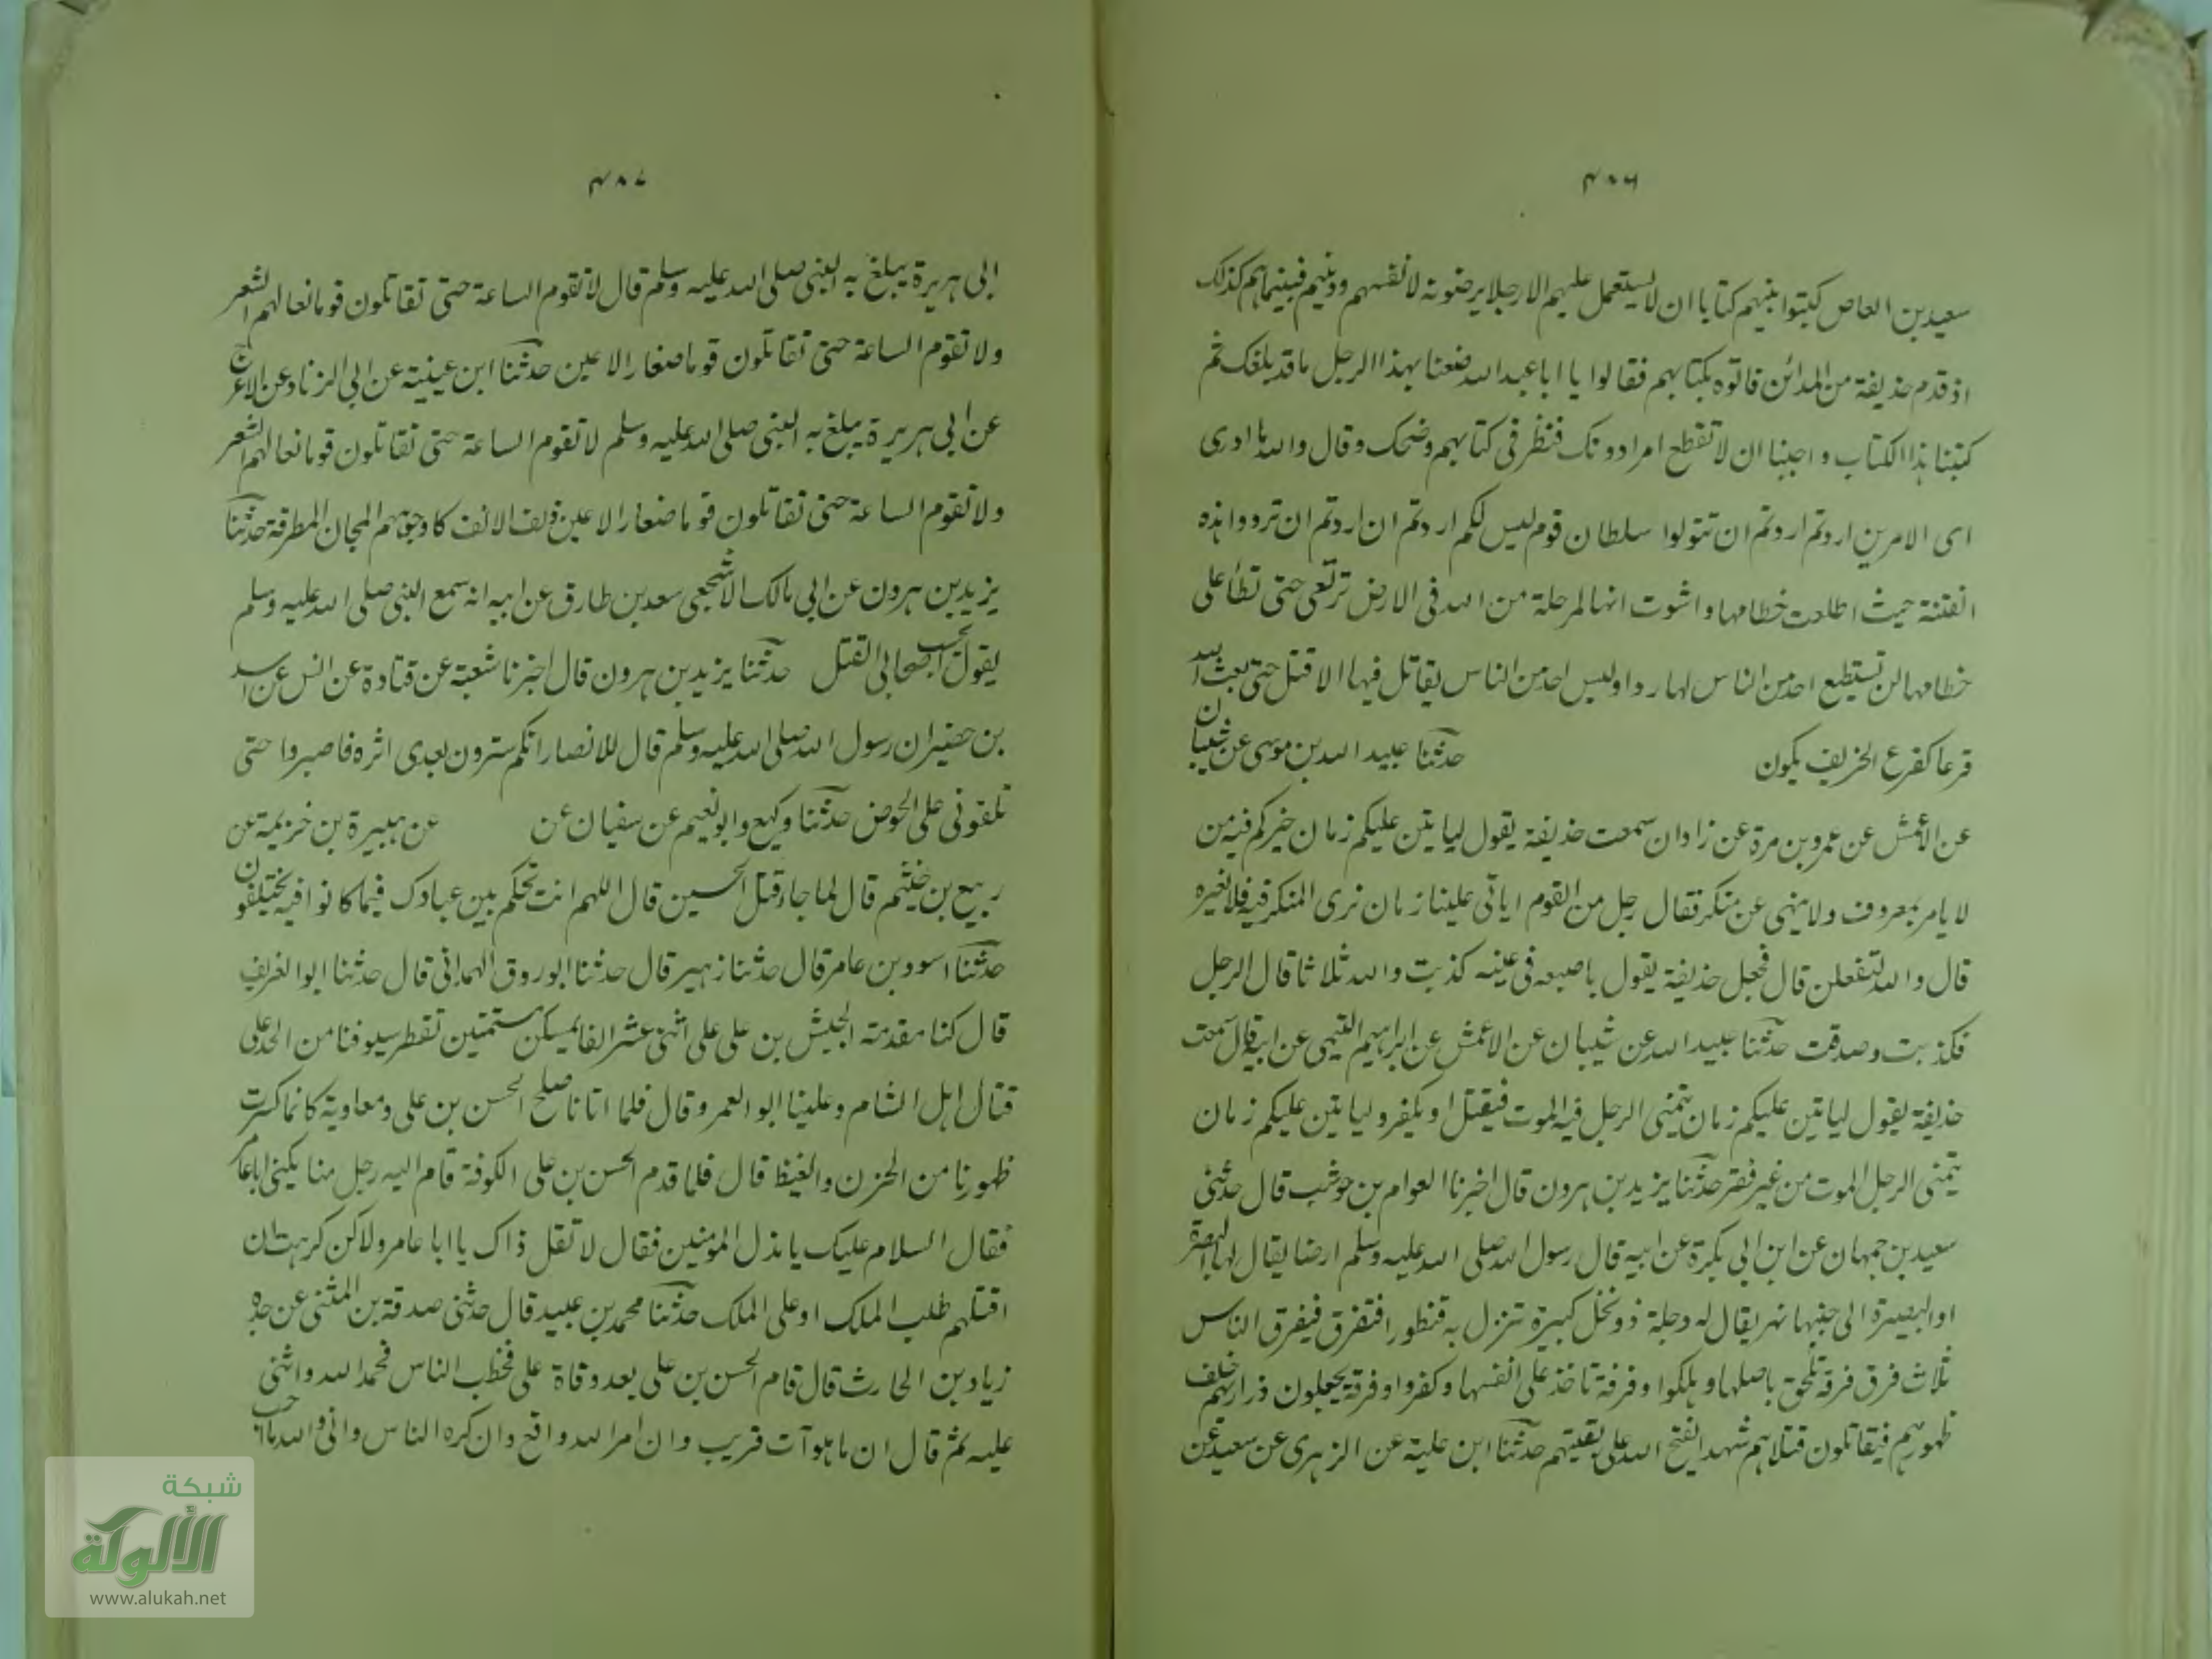 ٤٨٦
سعيد بن العاص كتبوا بينهم كتابا ان لا يستعمل عليهم الا رجلا يرضونه لانفسهم ودينهم فبينما هم كذلك
اذ قدم حذيفة من المدائن فاتوه بكتابهم فقالوا يا ابا عبد الله صنعنا بهذا الرجل ما قد بلغك ثم
كتبنا هذا الكتاب و احببنا ان لا نقطع امرا دونك فنظر فى كتابهم وضحك وقال والله ما ادرى
اى الامرين اردتم اردتم ان تتولوا سلطان قوم ليس لكم اردتم ان اردتم ان تردوا هذه
الفتنة حيث اطلعت خطامها واشوت انها لمرحلة من الله فى الارض ترتعى حتى تطأ على
خطامها لن تستطيع احد من الناس لها ردا وليس احد من الناس يقاتل فيها الا قتل حتى يبعث الله
قرعا كقرع الخريف يكون حدثنا عبيد الله بن موسى عن شيبان
عن الاعمش عن عمرو بن مرة عن زاذان سمعت حذيفة يقول لياتين عليكم زمان خيركم فيه من
لا يامر بمعروف ولا ينهى عن منكر فقال رجل من القوم ايأتى علينا زمان نرى المنكر فيه فلا نغيره
قال والله لتفعلن قال فجعل حذيفة يقول باصبعه فى عينه كذبت والله ثلاثا قال الرجل
فكذبت وصدقت حدثنا عبيد الله عن شيبان عن الاعمش عن ابراهيم التيمى عن ابيه قال سمعت
حذيفة يقول لياتين عليكم زمان يتمنى الرجل فيه الموت فيقتل او يكفر و لياتين عليكم زمان
يتمنى الرجل الموت من غير فقر حدثنا يزيد بن هرون قال اخبرنا العوام بن حوشب قال حدثنى
سعيد بن جمهان عن ابن ابى بكرة عن ابيه قال رسول الله صلى الله عليه وسلم ارضا يقال لها البصرة
او البصيرة الى جنبها نهر يقال له دجلة ذو نخل كبيرة تنزل به قنطورا فتفرق فيفرق الناس
ثلاث فرق فرقة تلحق باصلها و هلكوا وفرقة تاخذ على انفسها وكفروا وفرقة يجعلون ذراريهم خلف
ظهورهم فيقاتلون قتلاهم شهدا يفتح الله على بقيتهم حدثنا ابن علية عن الزهرى عن سعيد عن
٤٨٧
ابى هريرة يبلغ به النبى صلى الله عليه وسلم قال لا تقوم الساعة حتى تقاتلون قوما نعالهم الشعر
ولا تقوم الساعة حتى تقاتلون قوما صغار الاعين حدثنا ابن عيينة عن ابى الزناد عن الاعرج
عن ابى هريرة يبلغ به النبى صلى الله عليه وسلم لا تقوم الساعة حتى تقاتلون قوما نعالهم الشعر
ولا تقوم الساعة حتى تقاتلون قوما صغار الاعين ذلف الانف كا وجوههم المجان المطرقة حدثنا
يزيد بن هرون عن ابى مالك الاشجعى سعد بن طارق عن ابيه انه سمع النبى صلى الله عليه وسلم
يقول بحسب اصحابى القتل حدثنا يزيد بن هرون قال اخبرنا شعبة عن قتادة عن انس عن اسيد
بن حضير ان رسول الله صلى الله عليه وسلم قال للانصار انكم سترون بعدى اثره فاصبروا حتى
تلقونى على الحوض حدثنا وكيع وابو نعيم عن سفيان عن عن هبيرة بن خزيمة عن
ربيع بن خثيم قال لما جاء قتل الحسين قال اللهم انت تحكم بين عبادك فيما كانوا فيه يختلفون
حدثنا اسود بن عامر قال حدثنا زهير قال حدثنا ابو روق الهمدانى قال حدثنا ابو الغريف
قال كنا مقدمة الجيش بن على على اثنى عشر الفا بمسكن مستمتين تقطر سيوفنا من الحد على
قتال اهل الشام وعلينا ابو العمر وقال فلما اتانا صلح الحسن بن على ومعاوية كانما كسرت
ظهورنا من الحزن والغيظ قال فلما قدم الحسن بن على الكوفة قام اليه رجل منا يكنى ابا عامر
فقال السلام عليك يا مذل المؤمنين فقال لا تقل ذاك يا ابا عامر ولاكن كرهت ان
اقتلهم طلب الملك او على الملك حدثنا محمد بن عبيد قال حدثنى صدقة بن المثنى عن جده
زياد بن الحارث قال قام الحسن بن على بعد وفاة على فخطب الناس فحمد الله واثنى
عليه ثم قال ان ما هو آت قريب وان امر الله واقع وان كره الناس وانى والله ما احب
شبكة
الألوكة
www.alukah.net